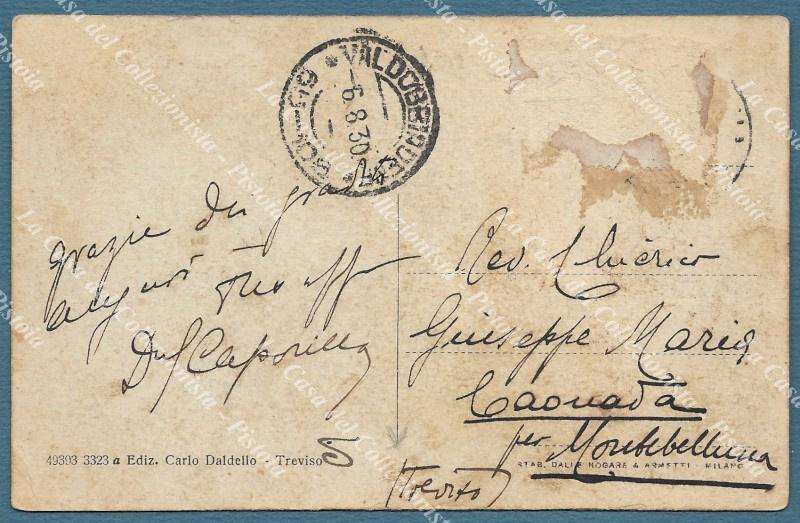 VALDOBBIADENE
6.8.30
grazie dei graditi
auguri Tuo aff
Rev. Chierico
Giuseppe Maria
Caonada
per Montebelluna
(Treviso)
49303 3323 a Ediz. Carlo Daldello - Treviso
STAB. DALLE NOGARE & ARMETTI - MILANO
La Casa del Collezionista - Pistoia